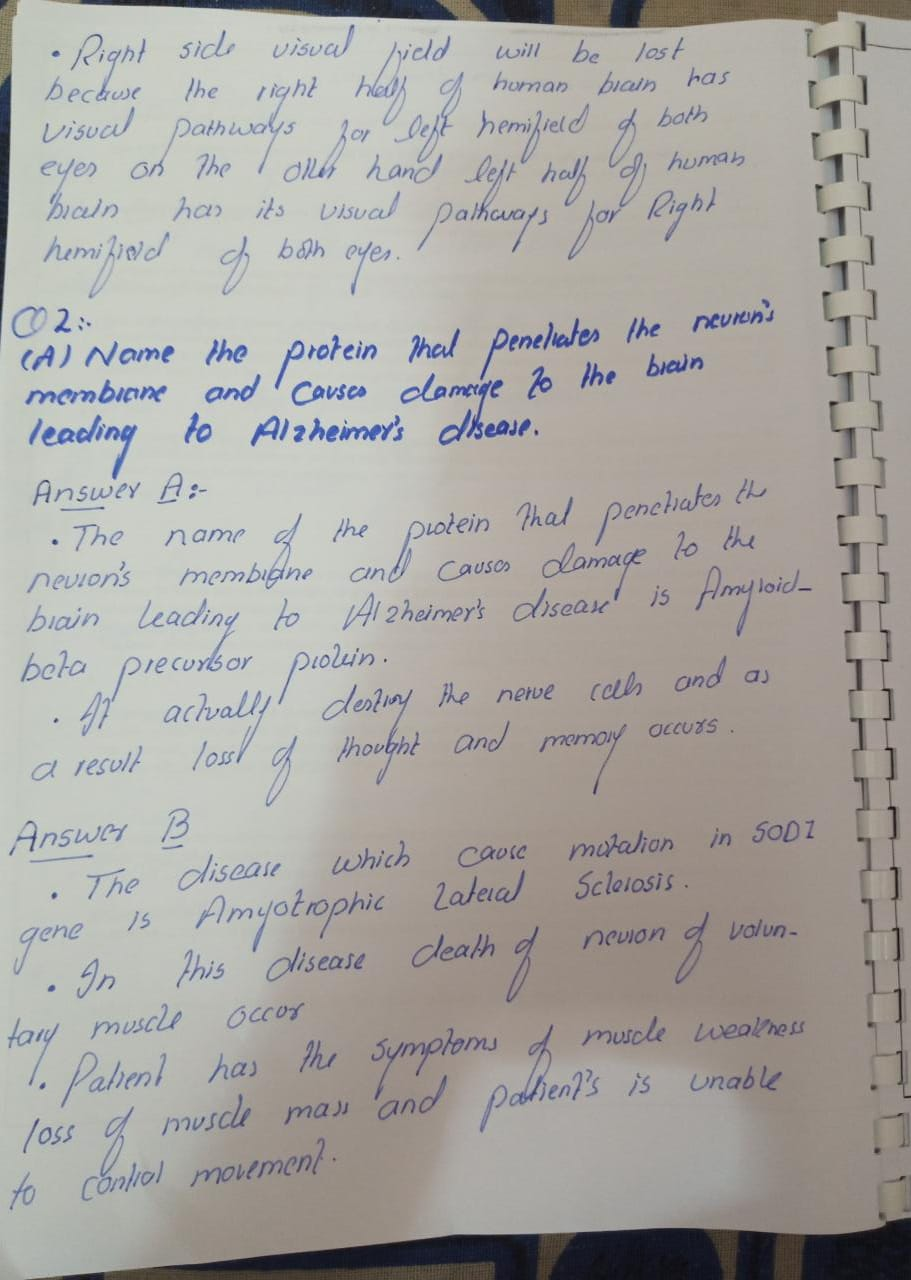 • Right side visual field will be lost
because the right half of human brain has
visual pathways for left hemifield of both
eyes on the other hand left half of human
brain has its visual pathways for Right
hemifield of both eyes.
Q 2:-
(A) Name the protein that penetrates the neuron's
membrane and causes damage to the brain
leading to Alzheimer's disease.
Answer A:-
• The name of the protein that penetrates the
neuron's membrane and causes damage to the
brain leading to Alzheimer's disease is Amyloid-
beta precursor protein.
• It actually destroy the nerve cells and as
a result loss of thought and memory occurs.
Answer B
• The disease which cause mutation in SOD1
gene is Amyotrophic Lateral Sclerosis.
• In this disease death of neuron of volun-
tary muscle occur
• Patient has the symptoms of muscle weakness
loss of muscle mass and patient's is unable
to control movement.